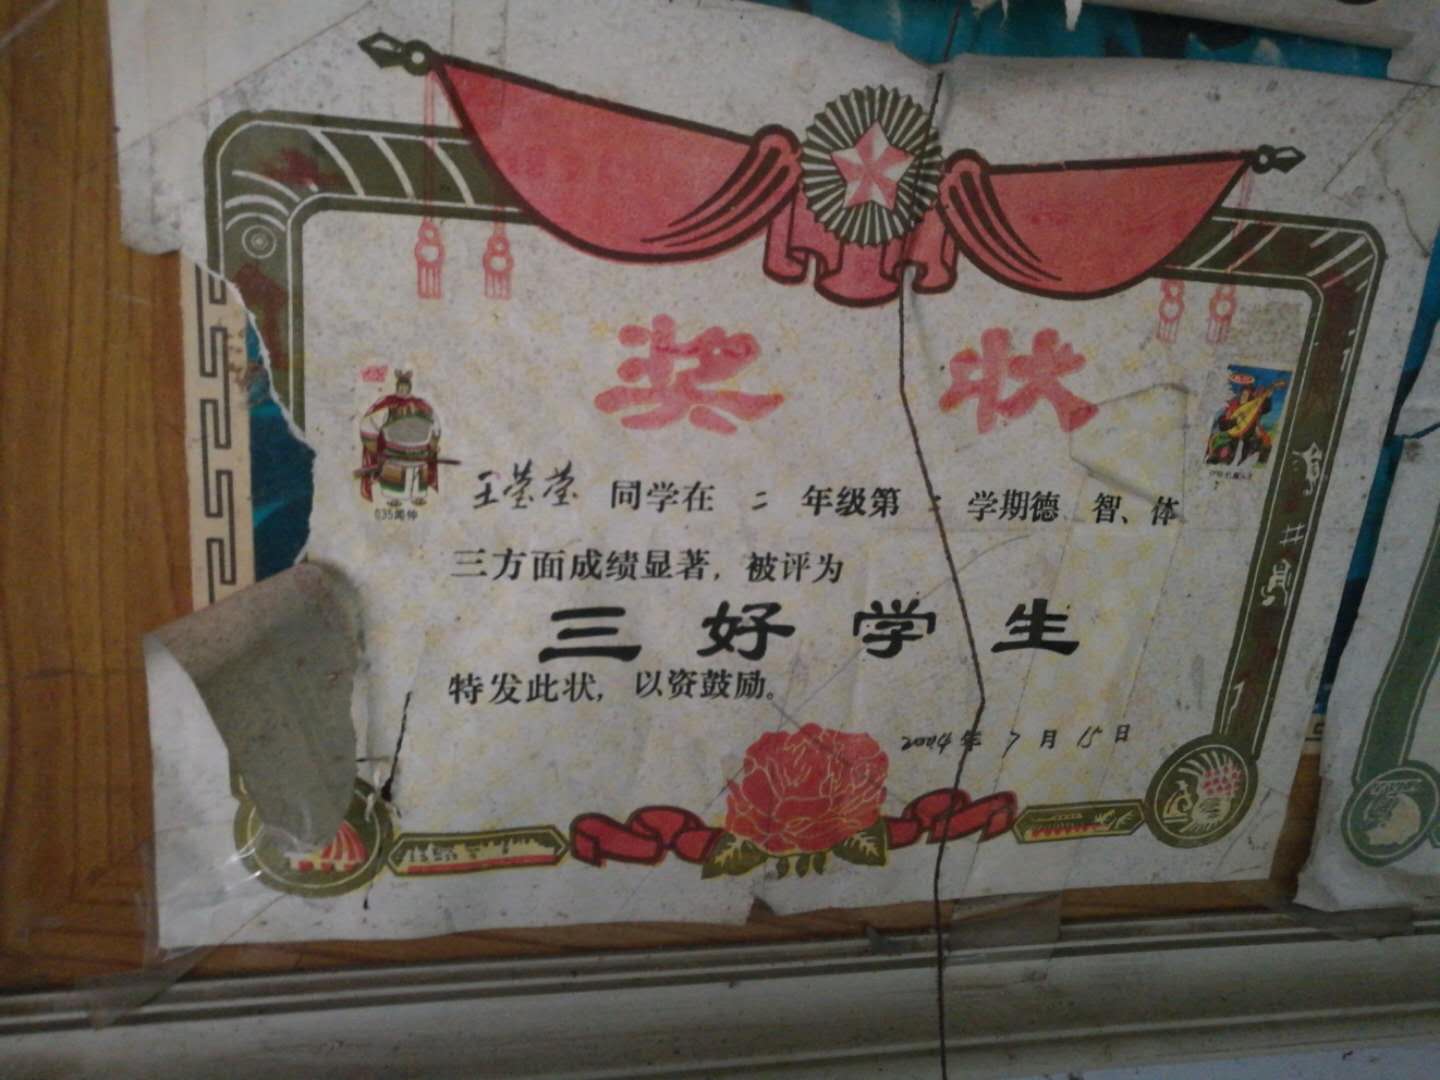 奖 状
王莹莹 同学在 二 年级第 二 学期德、智、体
三方面成绩显著，被评为
三 好 学 生
特发此状，以资鼓励。
2004 年 7 月 15 日